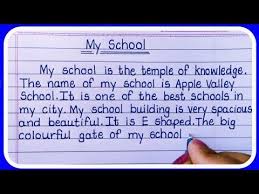 My School
My school is the temple of knowledge.
The name of my school is Apple Valley
School. It is one of the best schools in
my city. My school building is very spacious
and beautiful. It is E shaped. The big
colourful gate of my school